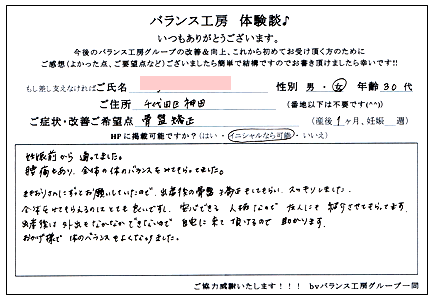 バランス工房 体験談♪
いつもありがとうございます。
今後のバランス工房グループの改善&向上、これから初めてお受け頂く方のために
ご感想(よかった点、ご要望点など)ございましたら簡単で結構ですのでお書き頂けましたら幸いです!!
もし差し支えなければご氏名 性別 男・女 年齢 30代
ご住所 千代田区神田 (番地以下は不要です(^^))
ご症状・改善ご希望点 骨盤矯正 (産後 1ヶ月、妊娠 週)
HPに掲載可能ですか?(はい・イニシャルなら可能・いいえ)
妊娠前から通ってました。
腰痛もあり、全体の体のバランスをみてもらってました。
をお願いしていたので、出産後の骨盤矯正をしてもらい、スッキリしました。
全体をみてもらえるのはとても良いですし、安心できる人柄なので 友人にも紹介させてもらってます。
出産後は外出もなかなかできないので 自宅に来て頂けるので 助かります。
おかげ様で 体のバランスもよくなりました。
ご協力感謝いたします!!! byバランス工房グループ一同